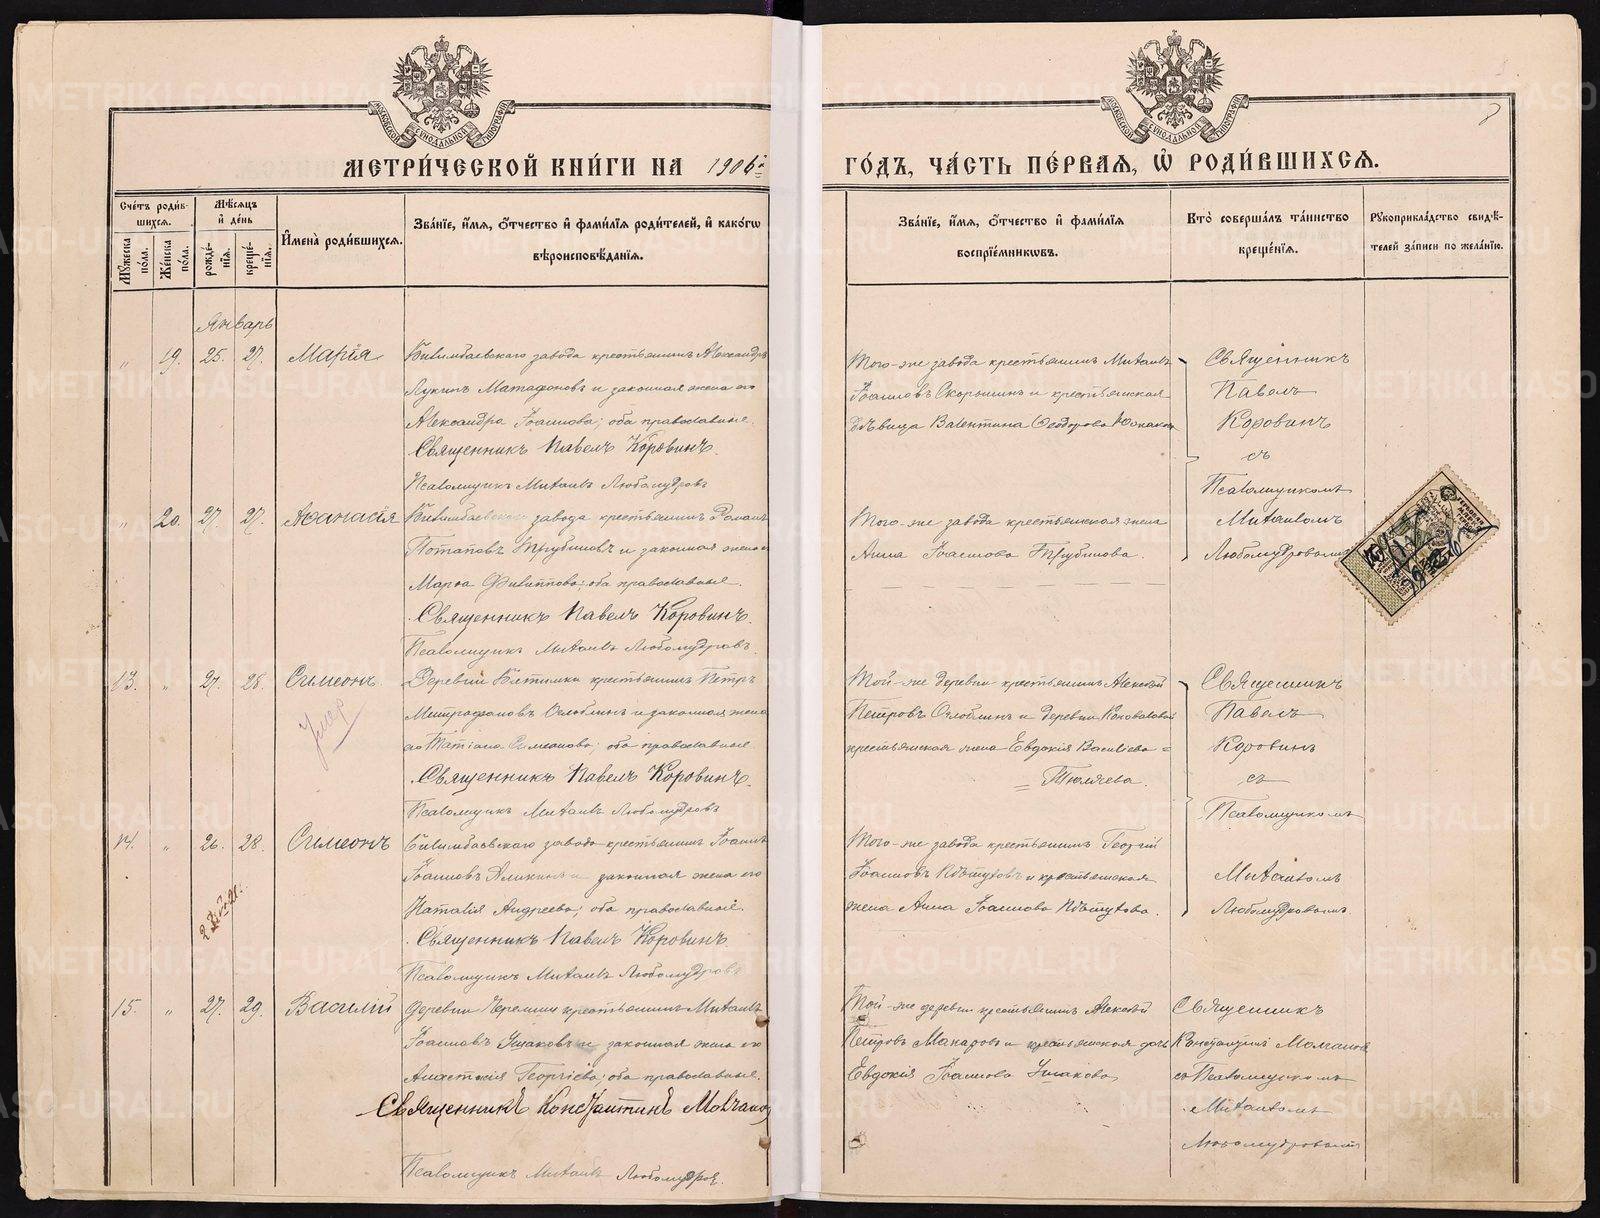 МЕТРИ́ЧЕСКОЙ КНИ́ГИ НА 1906 й
ГО́ДЪ, ЧА́СТЬ ПЕ́РВАЯ, Ѡ РОДИ́ВШИХСѦ.
Сче́тъ роди́в-
шихся.
Му́жеска по́ла.
Же́нска по́ла.
Мѣ́сяцъ и҆ де́нь
рожде́-
нїя.
креще́-
нїя.
И҆мена̀ роди́вшихся.
Зва́нїе, и҆́мя, ѻ҆́тчество и҆ фами́лїя роди́телей, и҆ како́гѡ
вѣроисповѣ́данїя.
Зва́нїе, и҆́мя, ѻ҆́тчество и҆ фами́лїя
воспрїе́мниковъ.
Кто̀ соверша́лъ та́инство
креще́нїя.
Рꙋкоприкла́дство свидѣ́-
телей за́писи по жела́нїю.
Январь
" 19. 25. 27. Марія
Билимбаевскаго завода крестьянинъ Александръ
Лукинъ Матафоновъ и законная жена его
Александра Іоаннова; оба православные.
Священникъ Павелъ Коровинъ.
Псаломщикъ Михаилъ Любомудровъ
Того-же завода крестьянинъ Михаилъ
Іоанновъ Скорынинъ и крестьянская
дѣвица Валентина Ѳеодорова
Священникъ
Павелъ
Коровинъ
съ
Псаломщикомъ
Михаиломъ
Любомудровымъ
" 20. 27. 27. Аѳанасія
Билимбаевскаго завода крестьянинъ Романъ
Потаповъ Трубиновъ и законная жена
Марѳа Филиппова; оба православные.
Священникъ Павелъ Коровинъ.
Псаломщикъ Михаилъ Любомудровъ.
Того-же завода крестьянская жена
Анна Іоаннова Трубинова.
13. " 27. 28. Симеонъ.
Умер
Деревни Битимки крестьянинъ Петръ
Митрофановъ Оглоблинъ и законная жена
его Татіана Симеонова; оба православные
Священникъ Павелъ Коровинъ.
Псаломщикъ Михаилъ Любомудровъ
Той-же деревни крестьянинъ Алексей
Петровъ Оглоблинъ и деревни Коноваловой
крестьянская жена Евдокія Василіева =
= Тюляева.
Священникъ
Павелъ
Коровинъ
съ
Псаломщикомъ
Михаиломъ
Любомудровымъ
14. " 26. 28. Симеонъ
Билимбаевскаго завода крестьянинъ Іоаннъ
Іоанновъ Аликинъ и законная жена его
Наталія Андреева; оба православные.
Священникъ Павелъ Коровинъ
Псаломщикъ Михаилъ Любомудровъ
Того-же завода крестьянинъ Георгій
Іоанновъ и крестьянская
жена Анна Іоаннова
15. " 27. 29. Василій
деревни Черемши крестьянинъ Михаилъ
Іоанновъ Ушаковъ и законная жена его
Анастасія Георгіева; оба православные.
Священникъ Константинъ Молчановъ
Псаломщикъ Михаилъ Любомудровъ.
Той-же деревни крестьянинъ Алексей
Петровъ Макаровъ и крестьянская дочь
Евдокія Іоаннова Ушакова
Священникъ
Константинъ Молчановъ
съ Псаломщикомъ
Михаиломъ
Любомудровымъ
METRIKI.GASO-URAL.RU